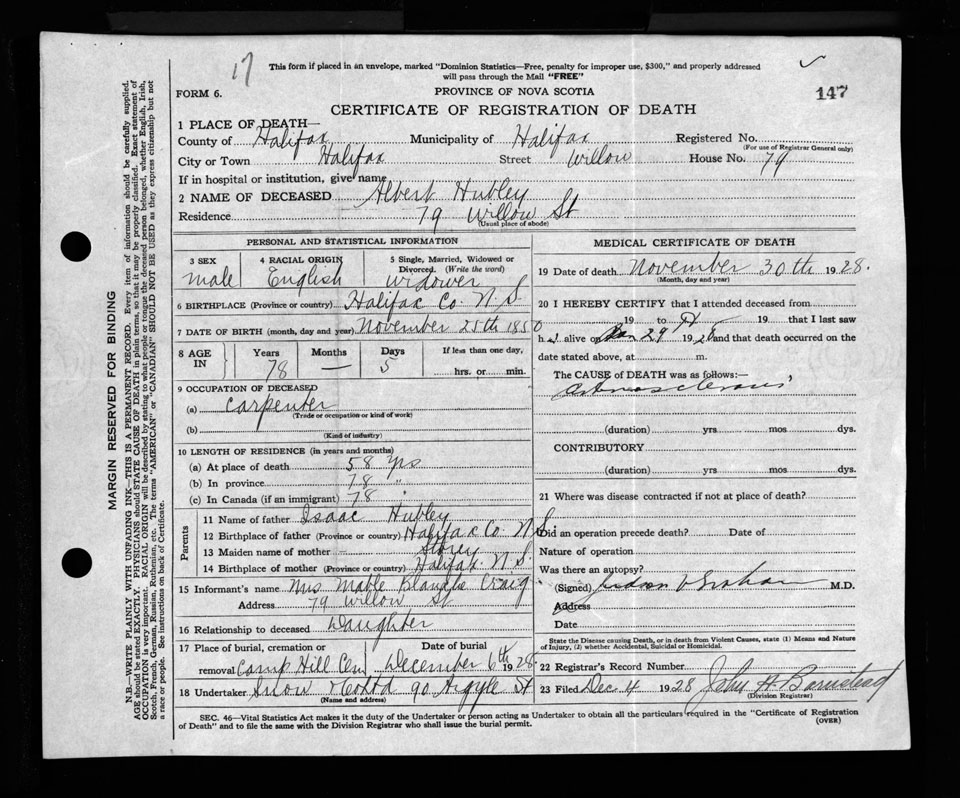 17
This form if placed in an envelope, marked "Dominion Statistics—Free, penalty for improper use, $300," and properly addressed
will pass through the Mail "FREE"
147
FORM 6.
PROVINCE OF NOVA SCOTIA
CERTIFICATE OF REGISTRATION OF DEATH
1 PLACE OF DEATH—
County of Halifax Municipality of Halifax Registered No.
(For use of Registrar General only)
City or Town Halifax Street Willow House No. 79
If in hospital or institution, give name
2 NAME OF DECEASED Albert Hubley
Residence 79 Willow St
(Usual place of abode)
PERSONAL AND STATISTICAL INFORMATION
3 SEX 4 RACIAL ORIGIN 5 Single, Married, Widowed or
Divorced. (Write the word)
male English widower
6 BIRTHPLACE (Province or country) Halifax Co. N.S.
7 DATE OF BIRTH (month, day and year) November 25th 1850
8 AGE IN Years Months Days If less than one day,
78 — 5 hrs. or min.
9 OCCUPATION OF DECEASED
(a) Carpenter
(Trade or occupation or kind of work)
(b)
(Kind of industry)
10 LENGTH OF RESIDENCE (in years and months)
(a) At place of death 58 yrs
(b) In province 78 "
(c) In Canada (if an immigrant) 78 "
Parents
11 Name of father Isaac Hubley
12 Birthplace of father (Province or country) Halifax Co. N.S.
13 Maiden name of mother Storey
14 Birthplace of mother (Province or country) Halifax N.S.
15 Informant's name Mrs Mable Blanche Craig
Address 79 Willow St
16 Relationship to deceased Daughter
17 Place of burial, cremation or Date of burial
removal Camp Hill Cem December 6th 1928
18 Undertaker Snow & Co Ltd 90 Argyle St
(Name and address)
MEDICAL CERTIFICATE OF DEATH
19 Date of death November 30th 1928.
(Month, day and year)
20 I HEREBY CERTIFY that I attended deceased from
19 to 19 that I last saw
h alive on Nov 29 1928 and that death occurred on the
date stated above, at m.
The CAUSE of DEATH was as follows:—
(duration) yrs mos dys.
CONTRIBUTORY
(duration) yrs mos dys.
21 Where was disease contracted if not at place of death?
Did an operation precede death? Date of
Nature of operation
Was there an autopsy?
(Signed) Judson V Graham M.D.
Address
Date
State the Disease causing Death, or in death from Violent Causes, state (1) Means and Nature
of Injury, (2) whether Accidental, Suicidal or Homicidal.
22 Registrar's Record Number
23 Filed Dec 4 1928 John A Barnstead
(Division Registrar)
SEC. 46—Vital Statistics Act makes it the duty of the Undertaker or person acting as Undertaker to obtain all the particulars required in the "Certificate of Registration
of Death" and to file the same with the Division Registrar who shall issue the burial permit.
(OVER)
MARGIN RESERVED FOR BINDING
N.B.—WRITE PLAINLY WITH UNFADING INK—THIS IS A PERMANENT RECORD. Every item of information should be carefully supplied.
AGE should be stated EXACTLY. PHYSICIANS should STATE CAUSE OF DEATH in plain terms, so that it may be properly classified. Exact statement of
OCCUPATION is very important. RACIAL ORIGIN will be described by stating to what people or tongue the deceased person belonged, whether English, Irish,
Scotch, French, German, Russian, Ruthenian, etc. The terms "AMERICAN" or "CANADIAN" SHOULD NOT BE USED as they express citizenship but not
a race or people. See instructions on back of Certificate.